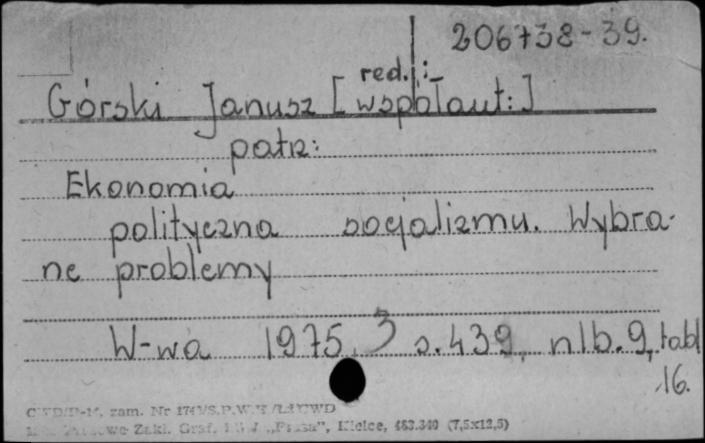 206738-39.
red. i
Górski Janusz [współaut:]
patrz:
Ekonomia
polityczna socjalizmu. Wybra-
ne problemy
W-wa 1975, s. 439, nlb. 9, tabl
16.
zam. Nr
Zakl. Graf. "Prasa", Kielce, 483.340 (7,5x12,5)